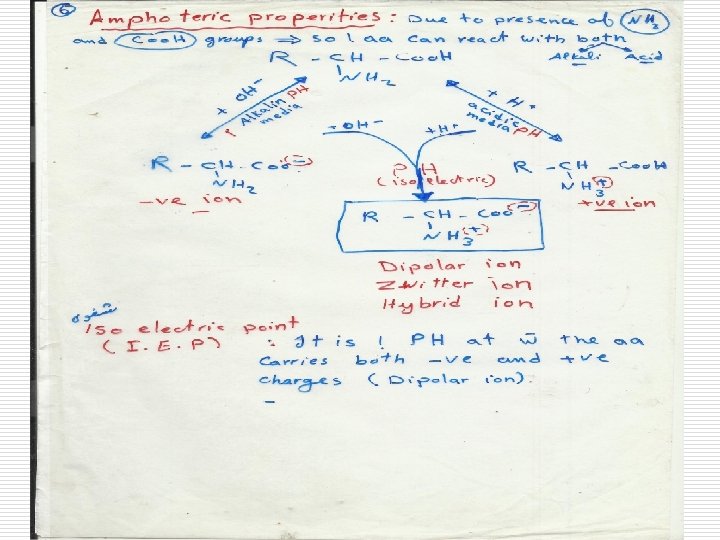 ⑥ Amphoteric properities : Due to presence of (NH2)
and (COOH) groups ⇒ so ! aa can react with both
R - CH - COOH Alkali Acid
NH2
+ OH-
↑ Alkalin PH
media
+ H+
acidic PH
media
+OH- +H+
R - CH - COO(-)
NH2
-ve ion
PH
(isoelectric)
R - CH - COOH
NH3(+)
+ve ion
R - CH - COO(-)
NH3(+)
Dipolar ion
Zwitter ion
Hybrid ion
Iso electric point
(I.E.P) : It is ! PH at w̄ the aa
Carries both -ve and +ve
charges (Dipolar ion).